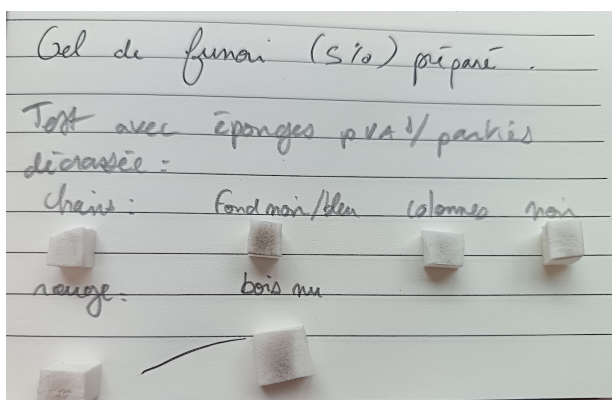 Gel de funori (5%) préparé.
Test avec éponges PVA s/ parties
décrassée :
chairs : fond noir/bleu colonnes noir
rouge : bois nu